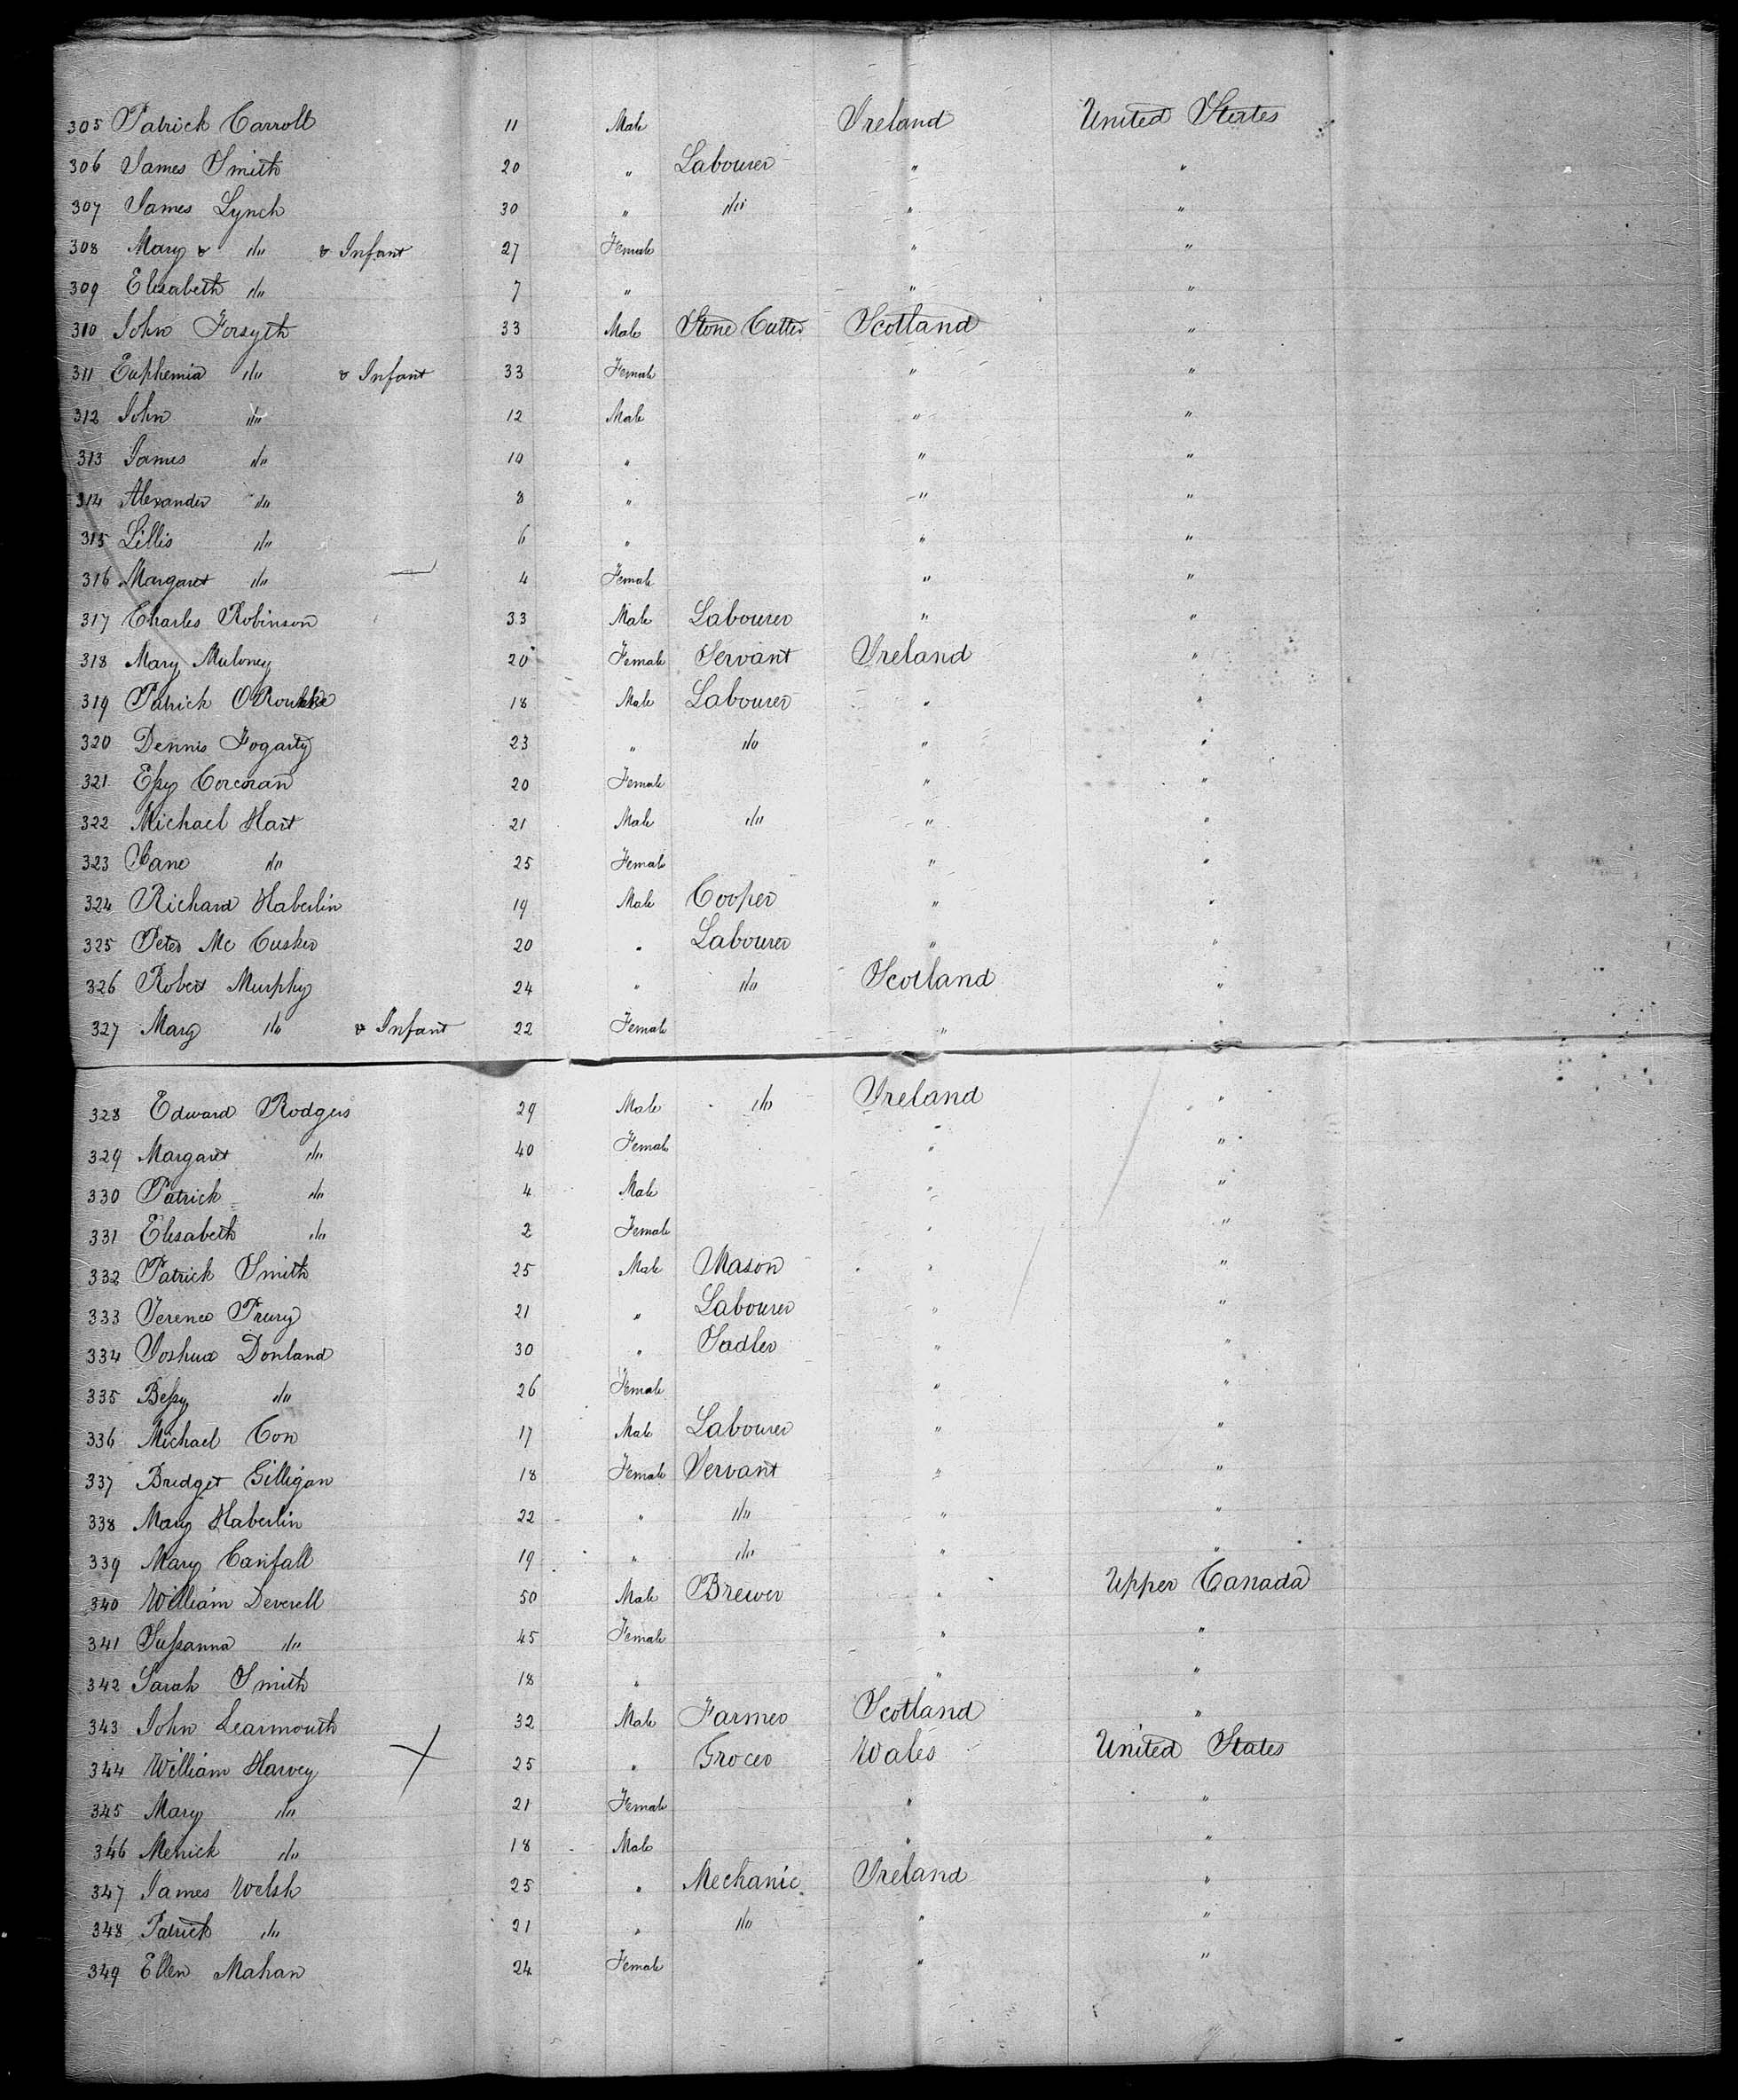 305 Patrick Carroll 11 Male Ireland United States
306 James Smith 20 " Labourer " "
307 James Lynch 30 " do " "
308 Mary & do & Infant 27 Female " "
309 Elisabeth do 7 " " "
310 John Forsyth 33 Male Stone Cutter Scotland "
311 Euphemia do & Infant 33 Female " "
312 John do 12 Male " "
313 James do 10 " " "
314 Alexander do 8 " " "
315 Lillis do 6 " " "
316 Margaret do 4 Female " "
317 Charles Robinson 33 Male Labourer " "
318 Mary Muloney 20 Female Servant Ireland "
319 Patrick O'Rourke 18 Male Labourer " "
320 Dennis Fogarty 23 " do " "
321 Essy Corcoran 20 Female " "
322 Michael Hart 21 Male do " "
323 Jane do 25 Female " "
324 Richard Haberlin 19 Male Cooper " "
325 Peter Mc Cusker 20 " Labourer " "
326 Robert Murphy 24 " do Scotland "
327 Mary do & Infant 22 Female " "
328 Edward Rodgers 29 Male do Ireland "
329 Margaret do 40 Female " "
330 Patrick do 4 Male " "
331 Elisabeth do 2 Female " "
332 Patrick Smith 25 Male Mason " "
333 Terence Prury 21 " Labourer " "
334 Joshua Donland 30 " Sadler " "
335 Bessy do 26 Female " "
336 Michael Con 17 Male Labourer " "
337 Bridget Gilligan 18 Female Servant " "
338 Mary Haberlin 22 " do " "
339 Mary Canfall 19 " do " "
340 William Deverell 50 Male Brewer " Upper Canada
341 Sussanna do 45 Female " "
342 Sarah Smith 18 " " "
343 John Learmouth 32 Male Farmer Scotland "
344 William Harvey 25 " Grocer Wales United States
345 Mary do 21 Female " "
346 Merick do 18 Male " "
347 James Welsh 25 " Mechanic Ireland "
348 Patrick do 21 " do " "
349 Ellen Mahan 24 Female " "